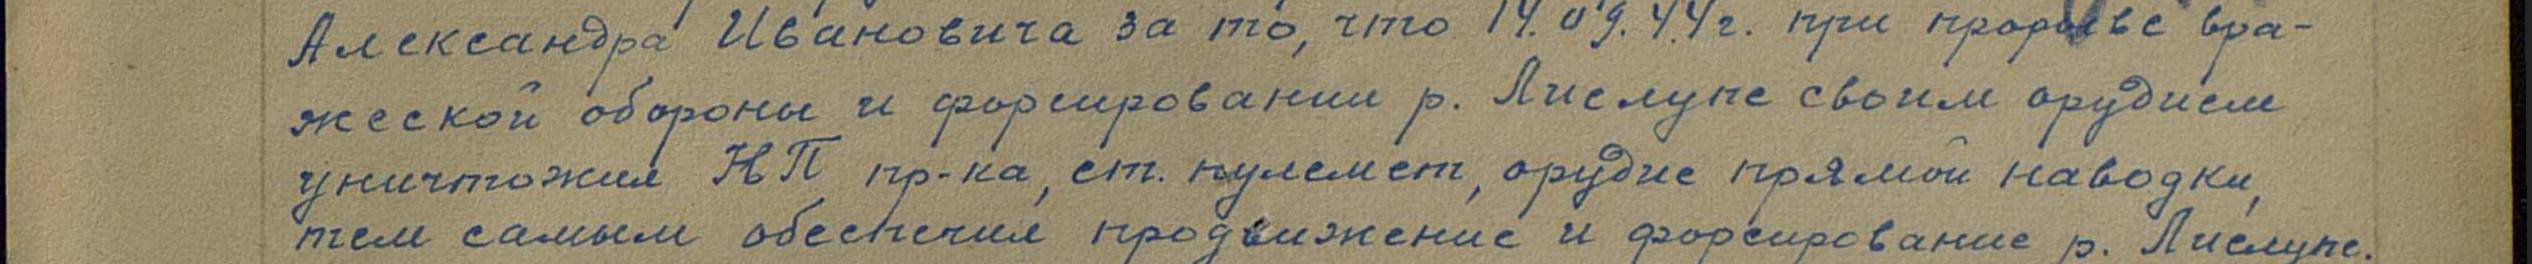 Александра Ивановича за то, что 14.09.44г. при прорыве вра-
жеской обороны и форсировании р. Лиелупе своим орудием
уничтожил НП пр-ка, ст. пулемет, орудие прямой наводки,
тем самым обеспечил продвижение и форсирование р. Лиелупе.